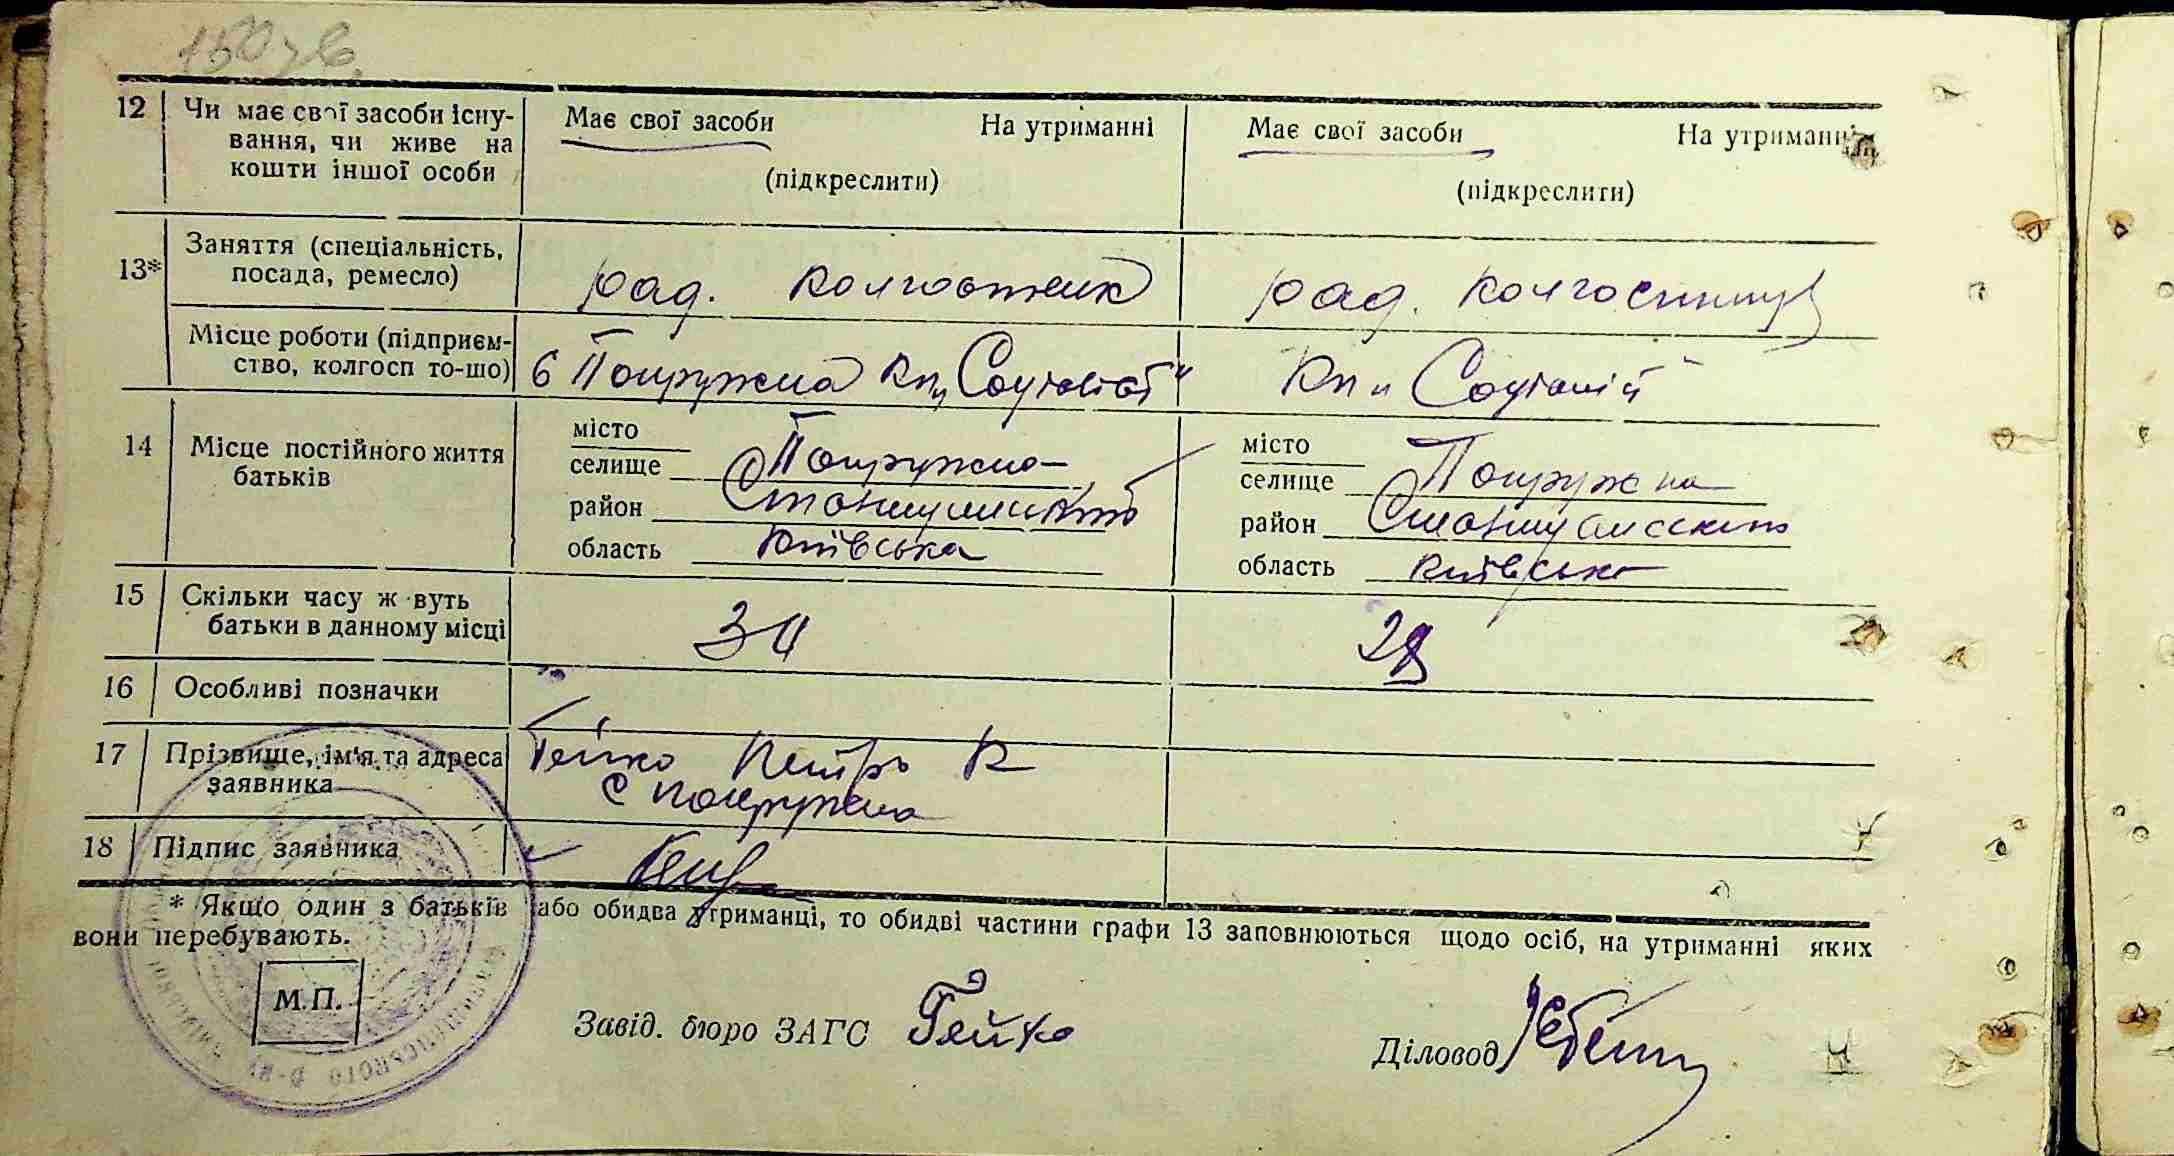 12 Чи має свої засоби існу-
вання, чи живе на
кошти іншої особи
Має свої засоби На утриманні
(підкреслити)
Має свої засоби На утриманні
(підкреслити)
13* Заняття (спеціальність,
посада, ремесло)
ряд. колгоспник
ряд. колгоспниця
Місце роботи (підприєм-
ство, колгосп то-що)
Кп „Соціаліст"
Кп „
14 Місце постійного життя
батьків
місто
селище
район
область Київська
місто
селище
район
область Київська
15 Скільки часу ж вуть
батьки в данному місці
16 Особливі позначки
17 Прізвище, ім'я та адреса
заявника
Гейко Петро К
с
18 Підпис заявника
* Якщо один з батьків або обидва утриманці, то обидві частини графи 13 заповнюються щодо осіб, на утриманні яких
вони перебувають.
М.П.
Завід. бюро ЗАГС Гейко
Діловод